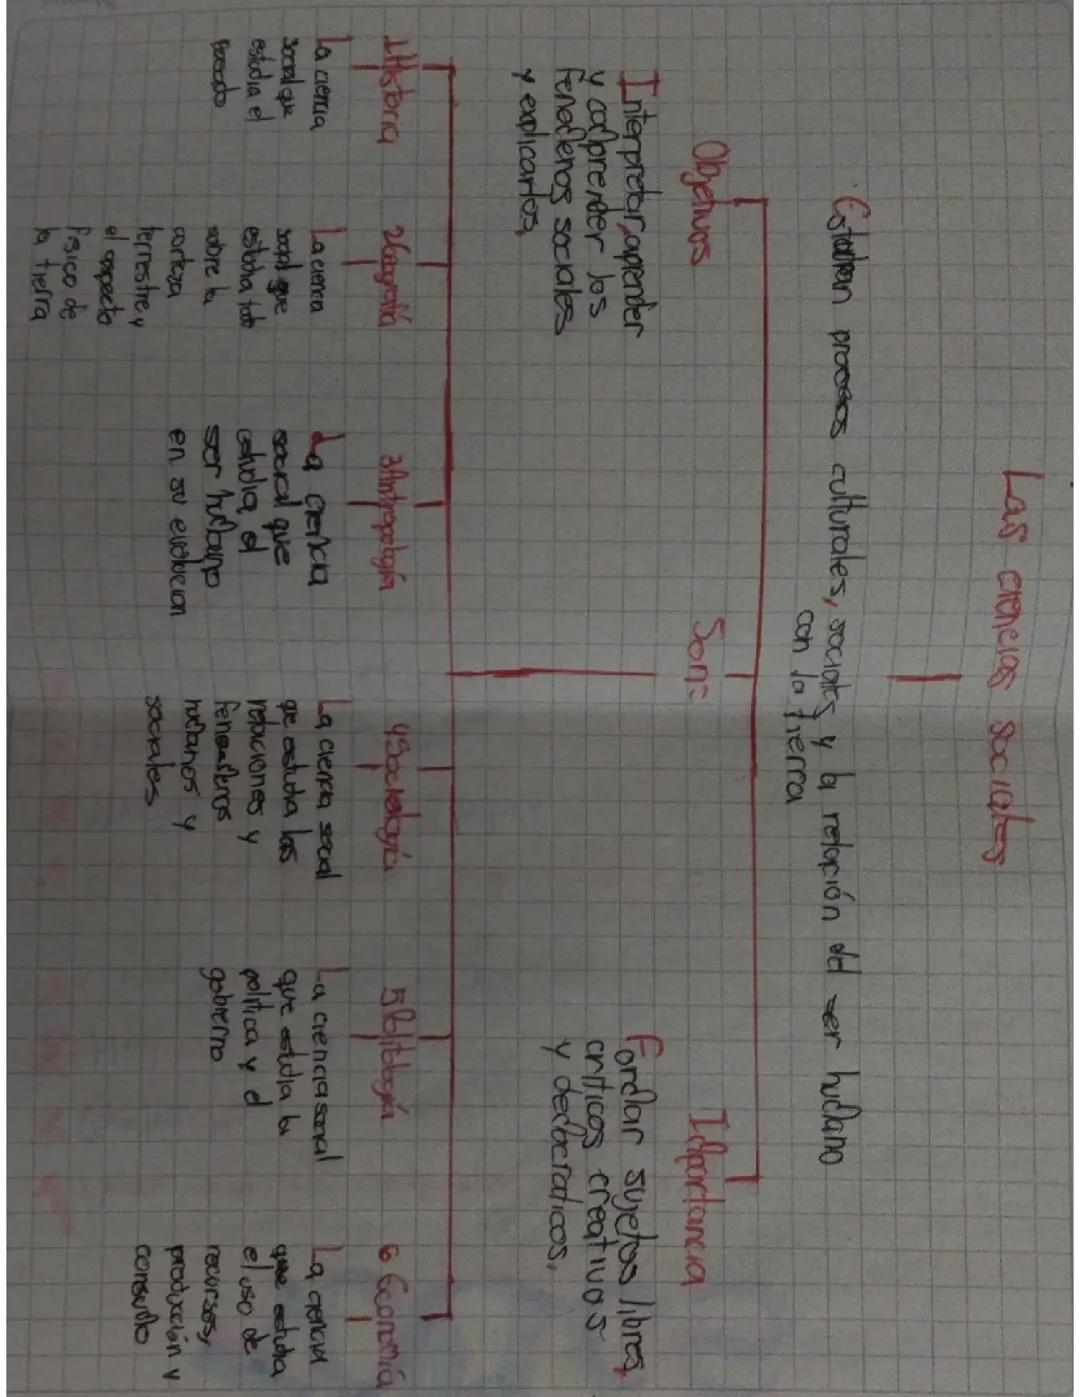 Las ciencias sociales
Estudian procesos culturales, sociales y la relación del ser humano
con la tierra
Objetivos
Interpretar, aprender
y comprender los
fenomenos sociales
y explicarlos,
Son:
Importancia
Formar sujetos libres,
criticos creativos
y democraticos.
1 Historia
La ciencia
social que
estudia el
pasado
2 Geografía
La ciencia
social que
estudia todo
sobre la
corteza
terrestre y
el aspecto
fisico de
la tierra
3 Antropología
La ciencia
social que
estudia el
ser humano
en su evolucion
4 Sociología
La ciencia social
que estudia las
relaciones y
fenomenos
humanos y
sociales
5 Politología
La ciencia social
que estudia la
politica y el
gobierno
6 Economía
La ciencia
que estudia
el uso de
recursos,
producción y
consumo